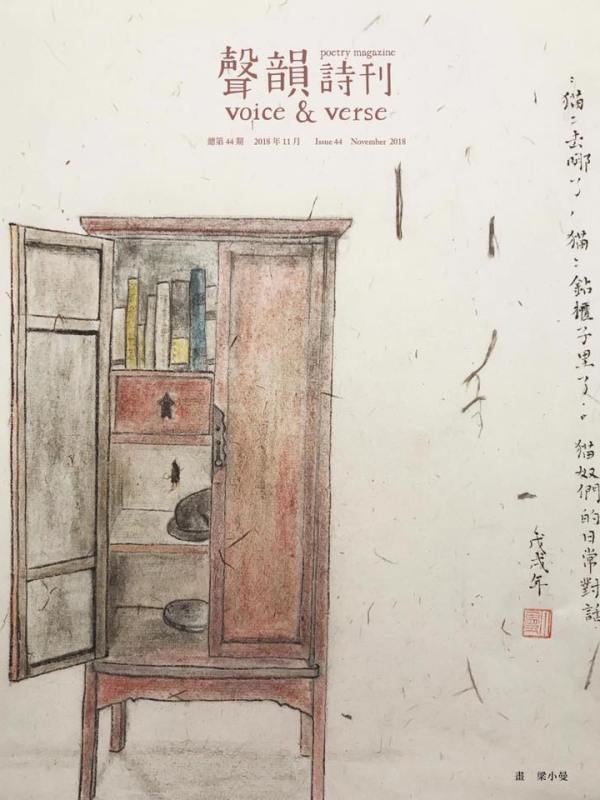 聲韻詩刊
poetry magazine
voice & verse
總第 44 期 2018 年 11 月 Issue 44 November 2018
：猫：去哪了，猫：鉆櫃子里了。猫奴們的日常對話
戊戌年
畫 梁小曼